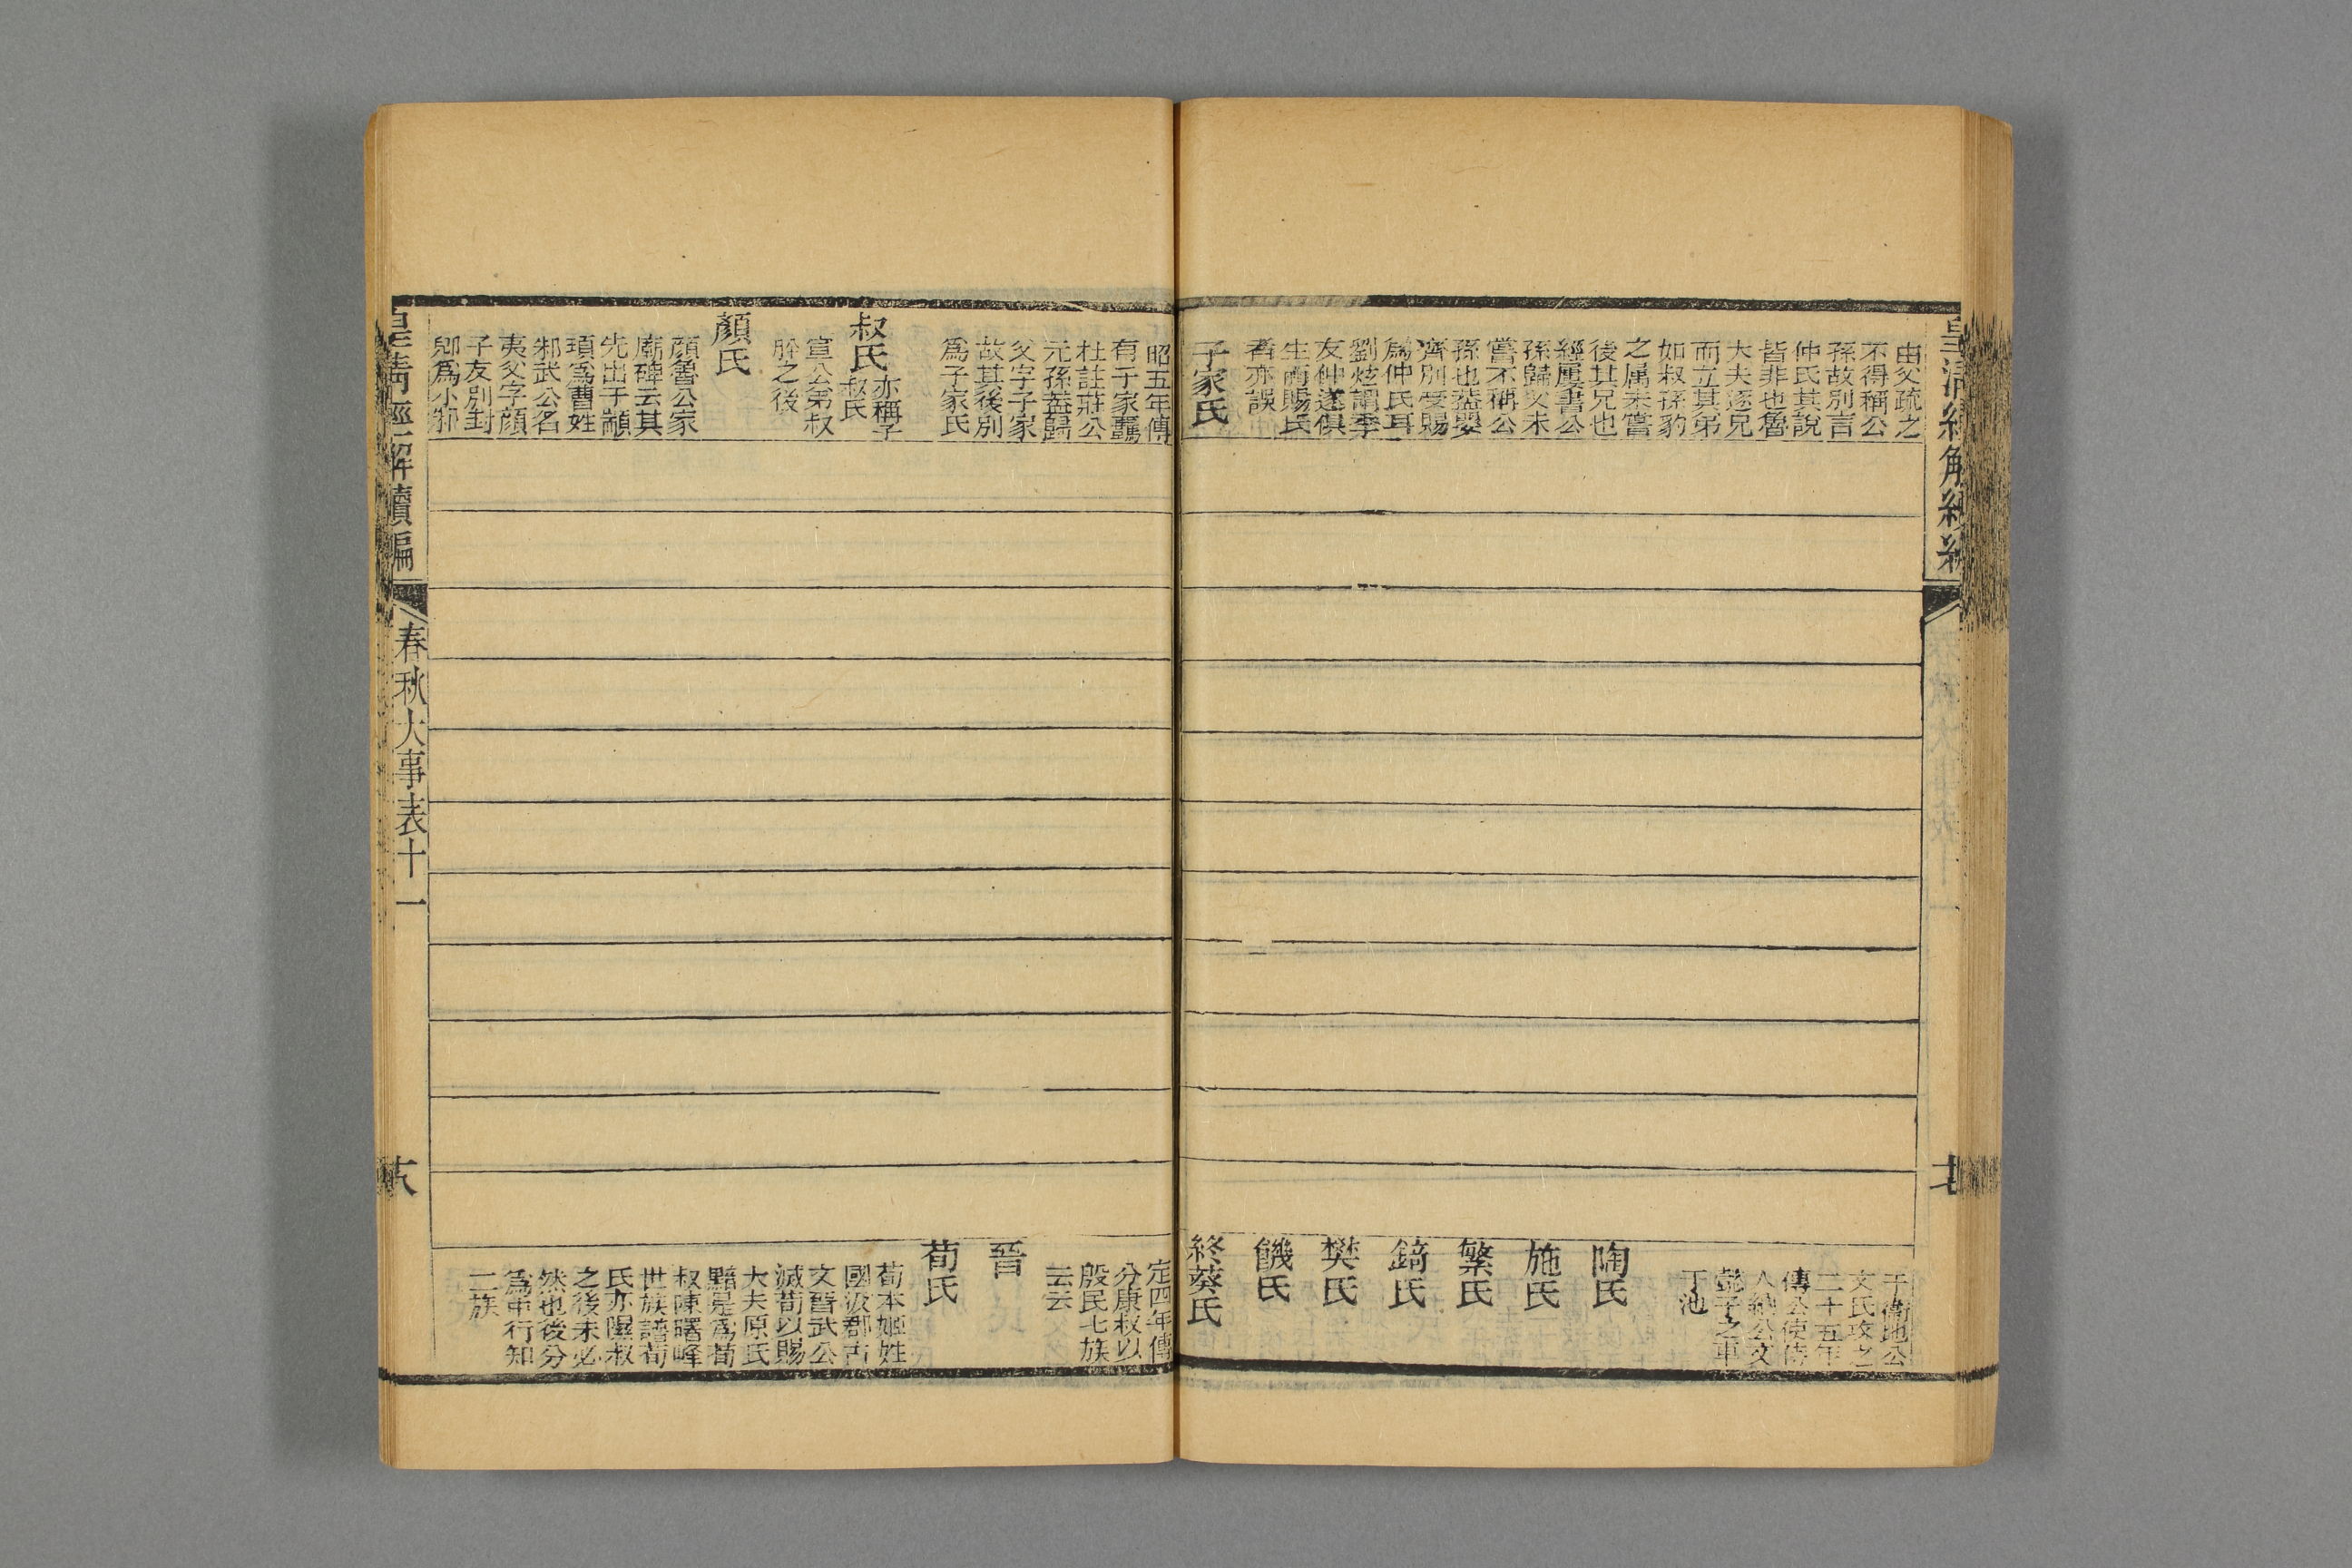 皇清經解續編
由父疏之
不得稱公
孫故別言
仲氏其說
皆非也魯
大夫逐兄
而立其弟
如叔孫豹
之属未嘗
後其兄也
經屢書公
孫歸父未
嘗不稱公
孫也蓋嬰
齊別受賜
爲仲氏耳
劉炫謂季
友仲遂俱
生而賜氏
者亦誤
子家氏
于衞地公
文氏攻之
二十五年
傳公使侍
人納公文
懿子之車
于池
陶氏
施氏
繁氏
錡氏
樊氏
饑氏
終葵氏
昭五年傳
有子家羈
杜註莊公
元孫蓋歸
父字子家
故其後別
爲子家氏
叔氏
亦稱子
叔氏
宣公弟叔
肸之後
顏氏
顏魯公家
廟碑云其
先出于顓
頊爲曹姓
邾武公名
夷父字顏
子友別封
郳爲小邾
定四年傳
分康叔以
殷民七族
云云
晉
荀氏
荀本姬姓
國汲郡古
文晉武公
滅荀以賜
大夫原氏
黯是爲荀
叔陳曙峰
世族譜荀
氏亦隰叔
之後未必
然也後分
爲中行知
二族
皇淸經解續編
春秋大事表十一